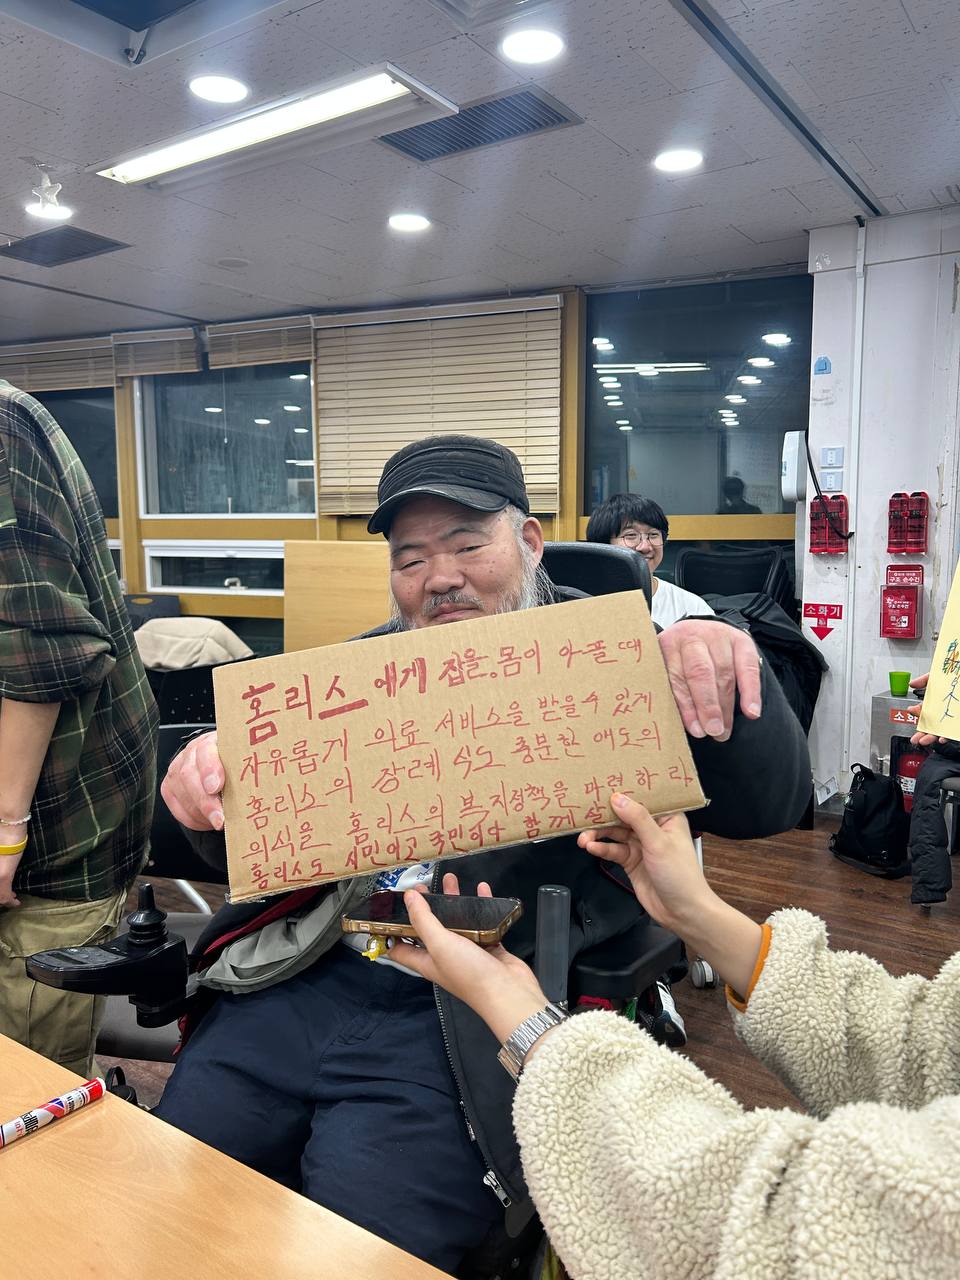 홈리스에게 집을. 몸이 아플때
자유롭게 의료 서비스을 받을수 있게
홈리스의 장례식도 충분한 애도의
의식을 홈리스의 복지정책을 마련하라
홈리스도 시민이고 국민이다 함께 살
소화기
구조 손수건
소화